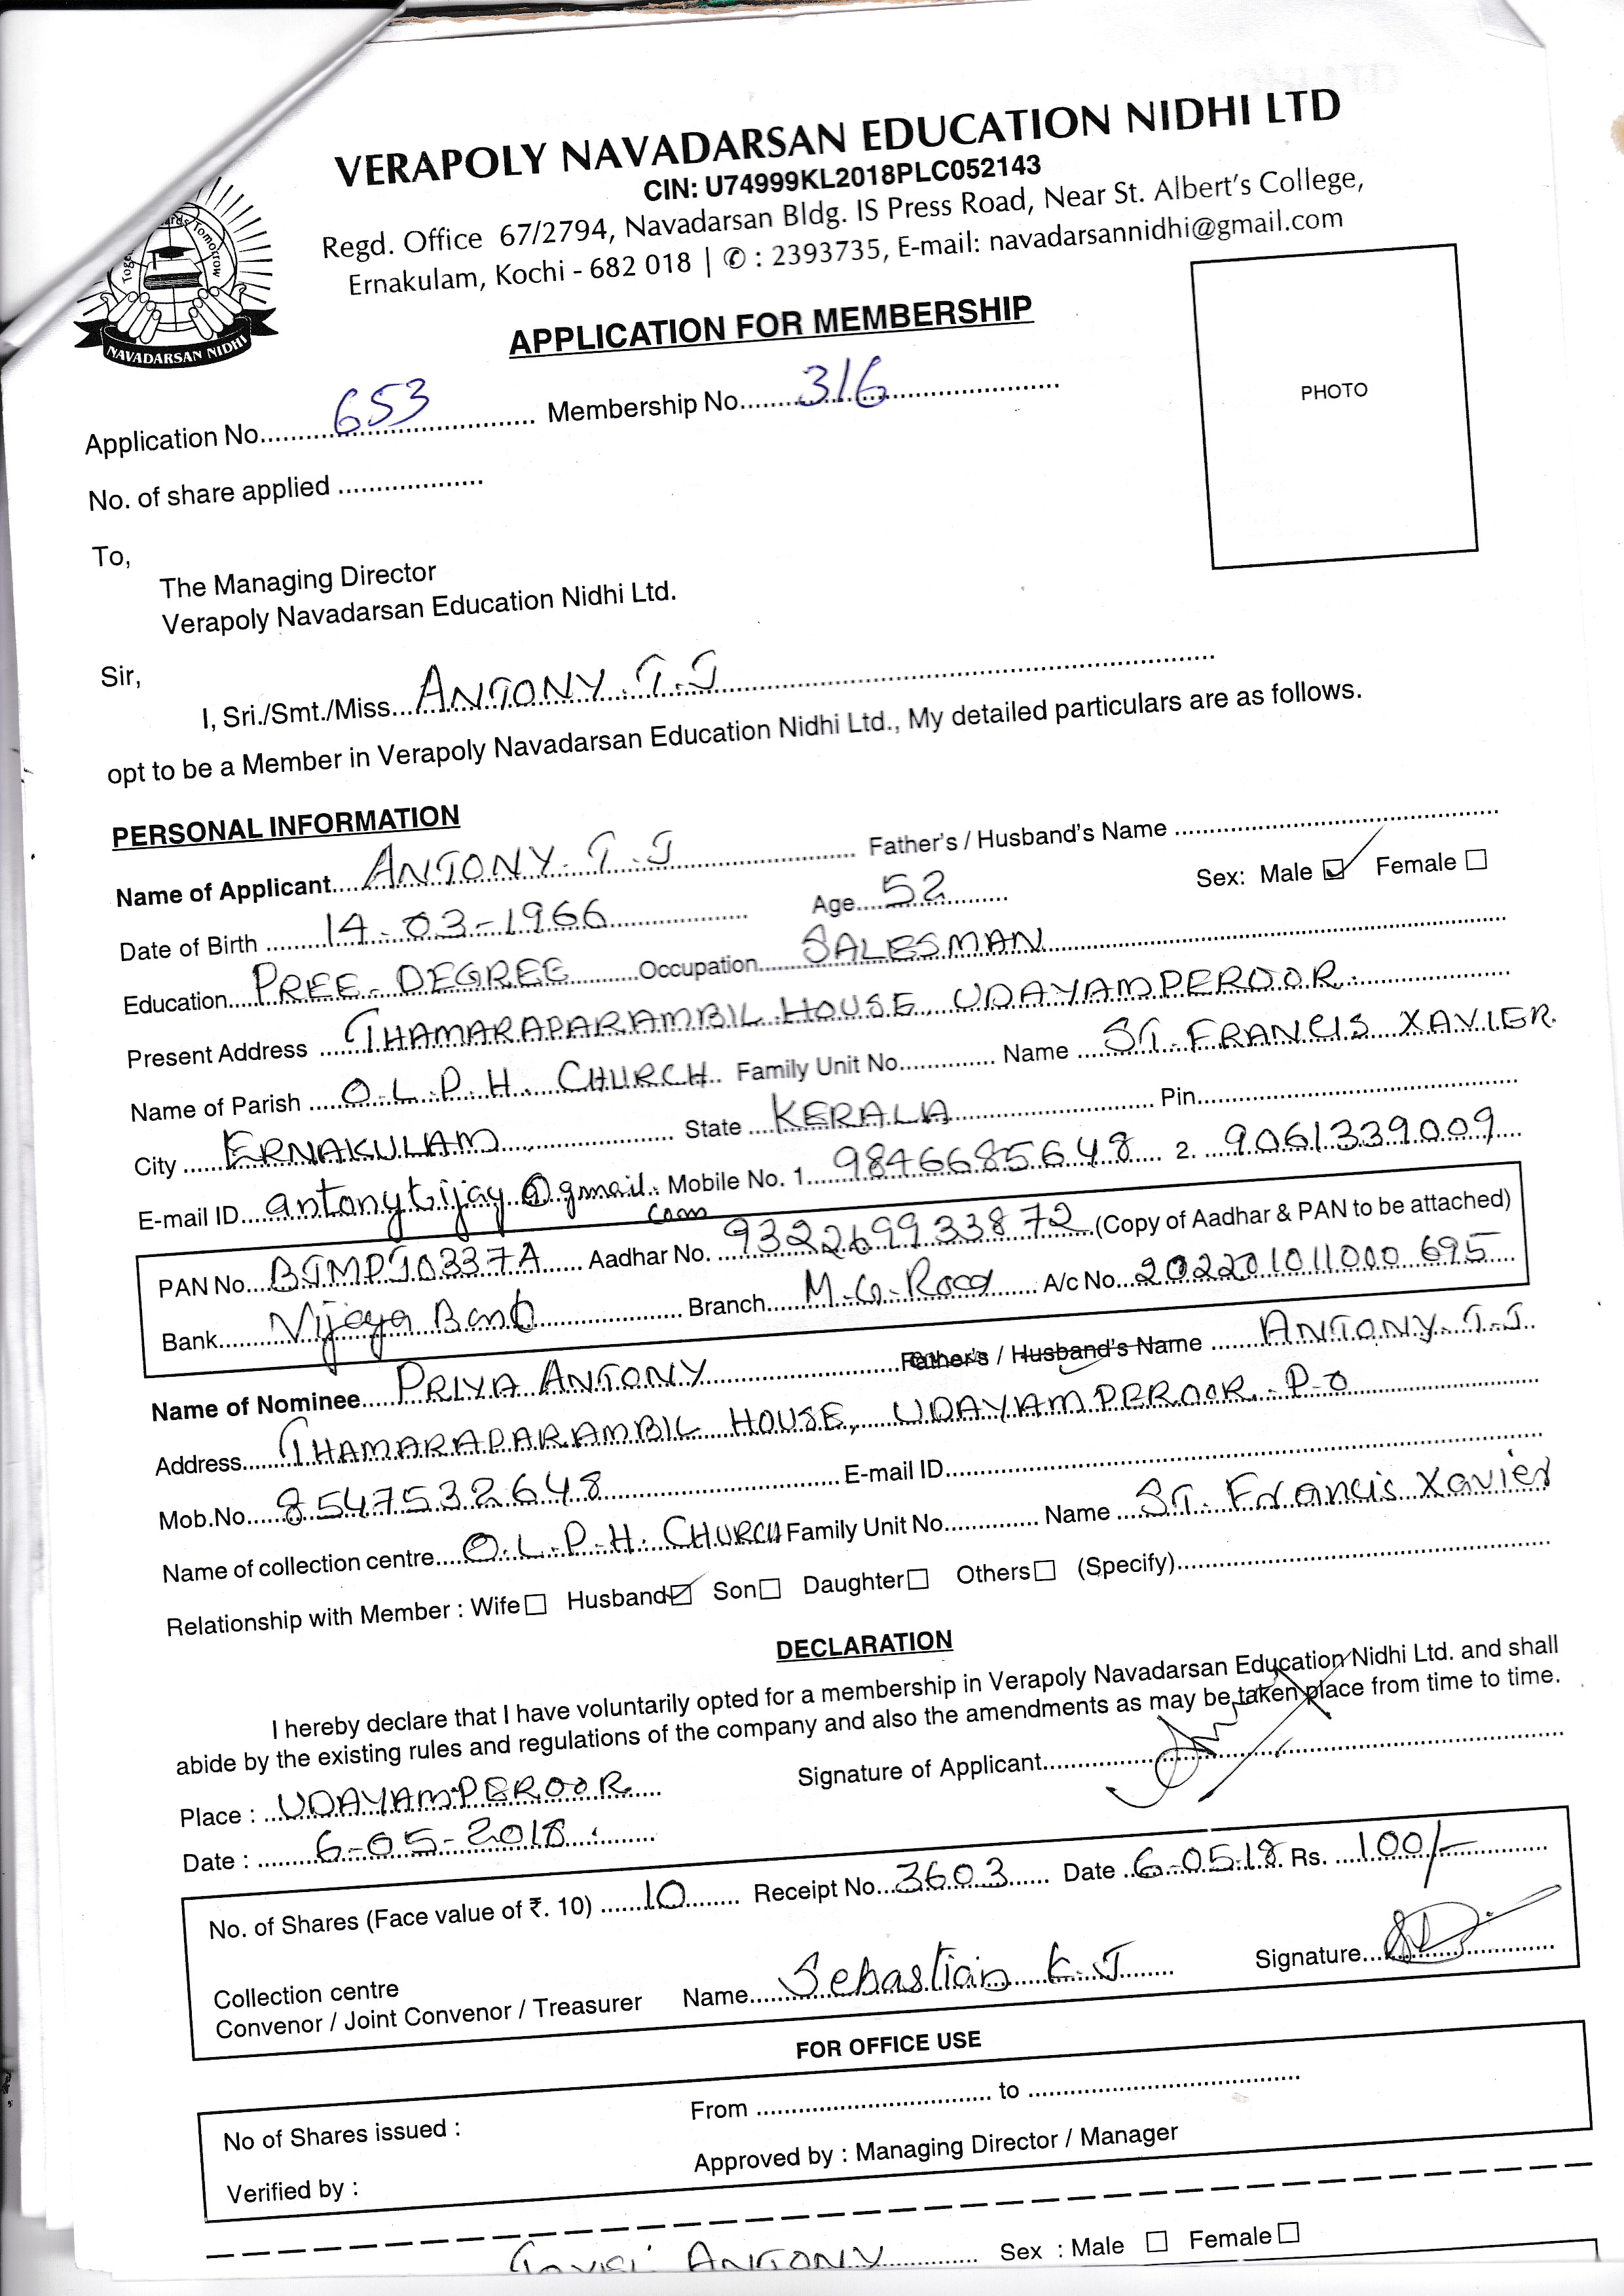 VERAPOLY NAVADARSAN EDUCATION NIDHI LTD
CIN: U74999KL2018PLC052143
Regd. Office 67/2794, Navadarsan Bldg. IS Press Road, Near St. Albert's College,
Ernakulam, Kochi - 682 018 | ✆ : 2393735, E-mail: navadarsannidhi@gmail.com
Tomorrow
NAVADARSAN NIDHI
APPLICATION FOR MEMBERSHIP
PHOTO
Application No. 653 Membership No. 316
No. of share applied
To,
The Managing Director
Verapoly Navadarsan Education Nidhi Ltd.
Sir,
I, Sri./Smt./Miss. ANTONY. T. J
opt to be a Member in Verapoly Navadarsan Education Nidhi Ltd., My detailed particulars are as follows.
PERSONAL INFORMATION
Name of Applicant ANTONY. T. J Father's / Husband's Name
Date of Birth 14-03-1966 Age 52 Sex: Male ☑ Female ☐
Education PREE-DEGREE Occupation SALESMAN
Present Address THAMARAPARAMBIL HOUSE, UDAYAMPEROOR.
Name of Parish O.L.P.H. CHURCH Family Unit No. Name ST. FRANCIS XAVIER.
City ERNAKULAM State KERALA Pin
E-mail ID antonytijay@gmail.com Mobile No. 1. 9846685648 2. 9061339009
PAN No. Aadhar No. 932269933872 (Copy of Aadhar & PAN to be attached)
Bank Vijaya Bank Branch M.G. Road A/c No. 202201011000695
Name of Nominee PRIYA ANTONY Father's / Husband's Name ANTONY. T. J.
Address THAMARAPARAMBIL HOUSE, UDAYAMPEROOR. P-O
Mob.No. 8547532648 E-mail ID
Name of collection centre O.L.P.H. CHURCH Family Unit No. Name ST. Francis Xavier
Relationship with Member : Wife ☐ Husband ☑ Son ☐ Daughter ☐ Others ☐ (Specify)
DECLARATION
I hereby declare that I have voluntarily opted for a membership in Verapoly Navadarsan Education Nidhi Ltd. and shall
abide by the existing rules and regulations of the company and also the amendments as may be taken place from time to time.
Signature of Applicant
Place : UDAYAMPEROOR
Date : 6-05-2018
No. of Shares (Face value of ₹. 10) 10 Receipt No. 3603 Date 6-05-18 Rs. 100/-
Collection centre
Convenor / Joint Convenor / Treasurer Name Sebastian K.J Signature
FOR OFFICE USE
No of Shares issued : From to
Verified by : Approved by : Managing Director / Manager
ANTONY Sex : Male ☐ Female ☐